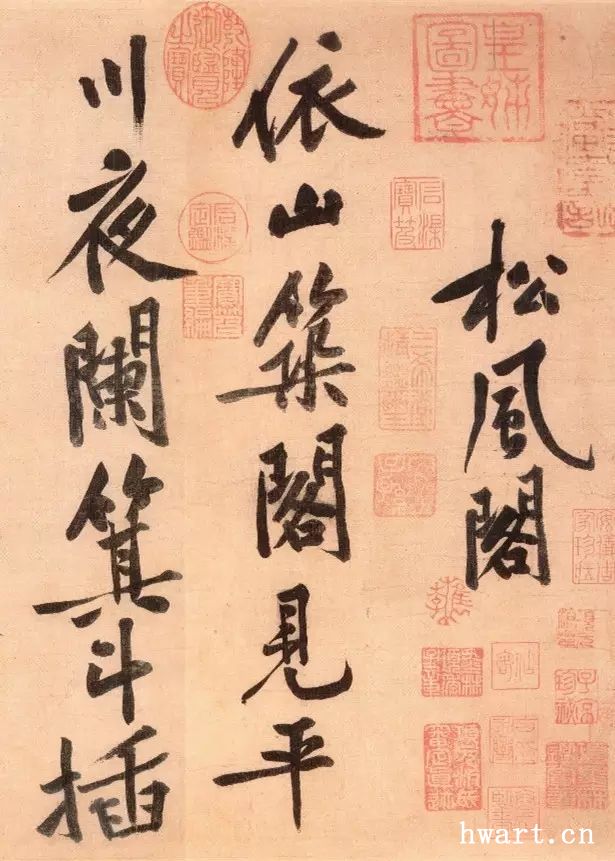 松風閣
依山築閣見平
川夜闌箕斗插
hwart.cn